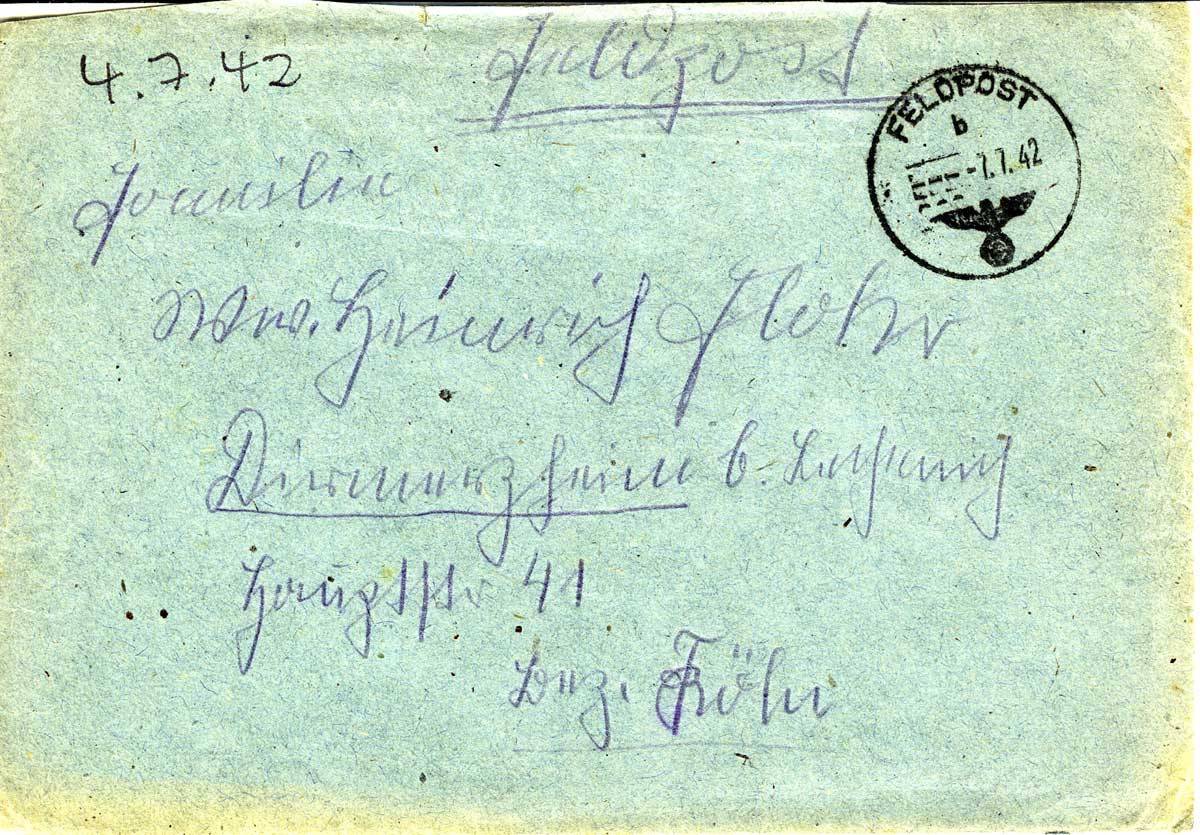 4.7.42
Feldpost
FELDPOST
b
-7.7.42
Familie
Ww. Heinrich Flohr
Dirmerzheim b. Lechenich
Hauptstr 41
Bez. Köln